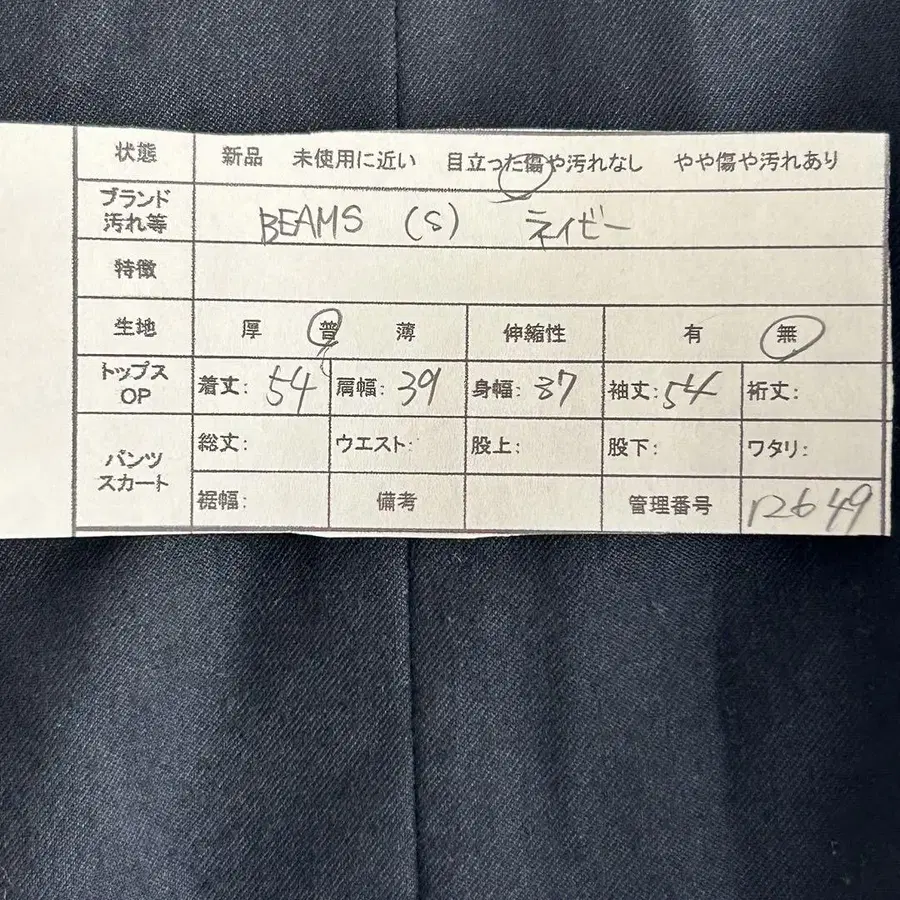 状態 新品 未使用に近い 目立った傷や汚れなし やや傷や汚れあり
ブランド
汚れ等 BEAMS (S) ネイビー
特徴
生地 厚 普 薄 伸縮性 有 無
トップス
OP 着丈: 54 肩幅: 39 身幅: 37 袖丈: 54 裄丈:
パンツ
スカート 総丈: ウエスト: 股上: 股下: ワタリ:
裾幅: 備考 管理番号 12649